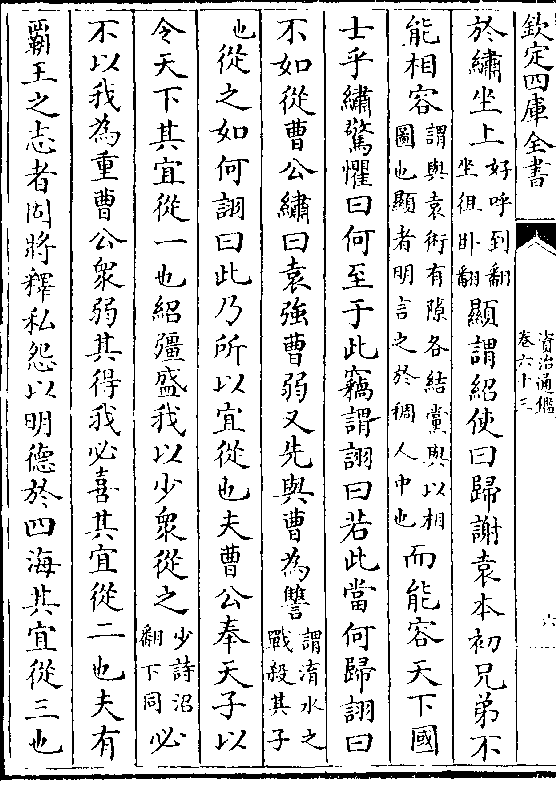 欽定四庫全書
資治通鑑
卷六十三
六
於繡坐上好呼到翻坐徂卧翻顯謂紹使曰歸謝袁本初兄弟不
能相容謂與袁術有隙各結黨與以相圖也顯者明言之於稠人中也而能容天下國
士乎繡驚懼曰何至于此竊謂詡曰若此當何歸詡曰
不如從曹公繡曰袁強曹弱又先與曹為讐謂淯水之戰殺其子
也從之如何詡曰此乃所以宜從也夫曹公奉天子以
令天下其宜從一也紹彊盛我以少衆從之少詩沼翻下同必
不以我為重曹公衆弱其得我必喜其宜從二也夫有
覇王之志者固將釋私怨以明德於四海其宜從三也